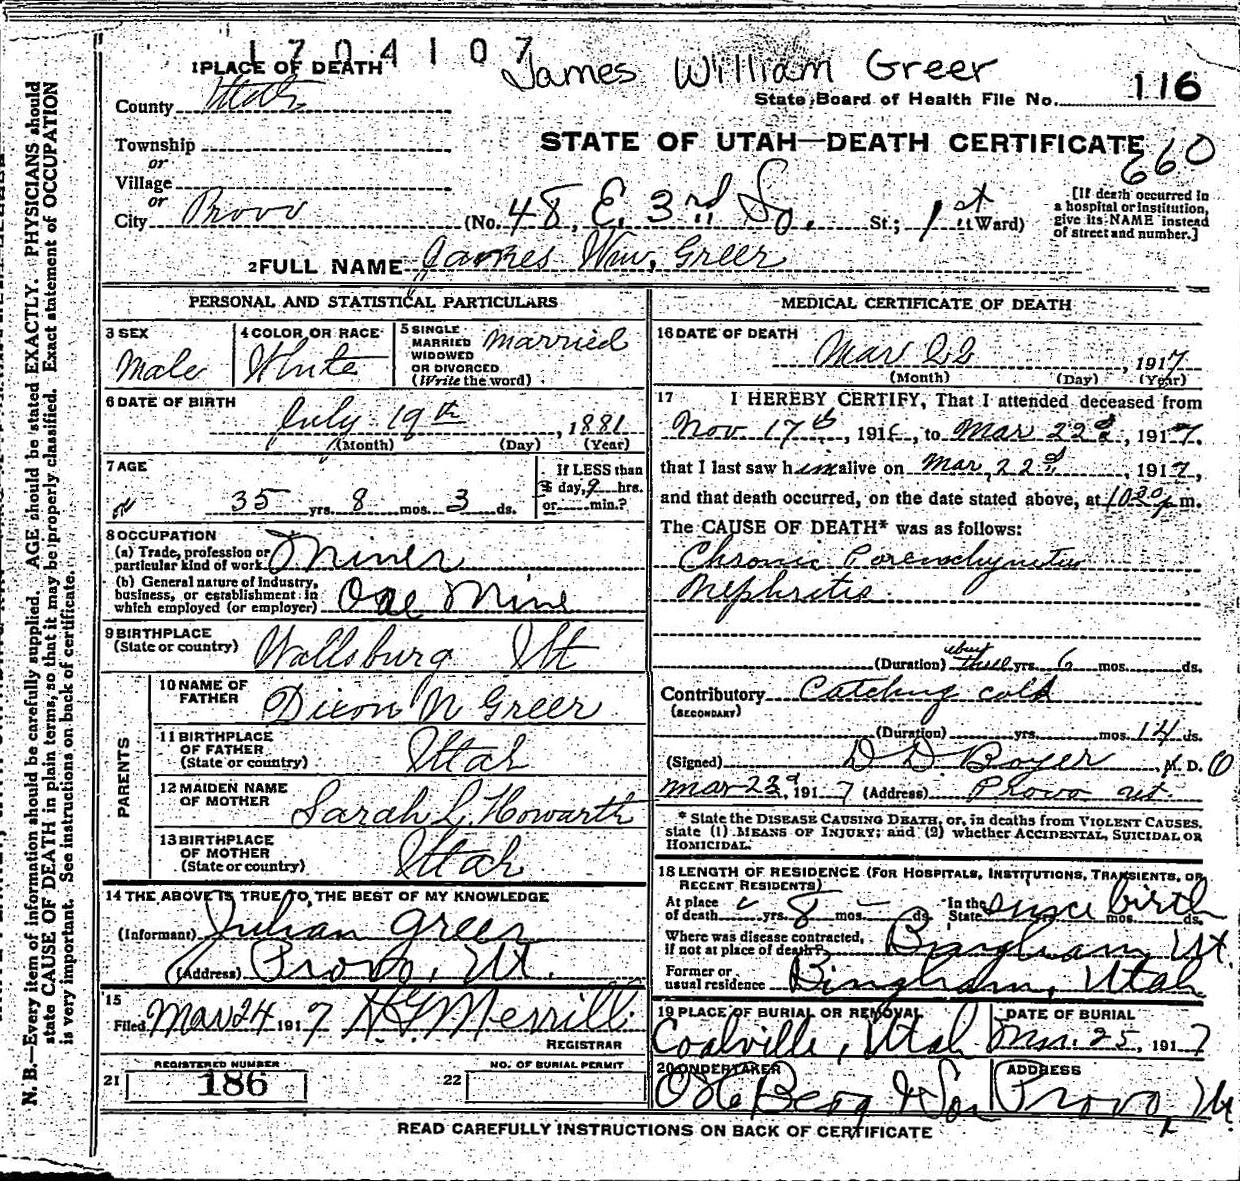 1704107
James William Greer
1 PLACE OF DEATH
County Utah
State Board of Health File No. 116
Township
or
Village
or
City Provo
STATE OF UTAH—DEATH CERTIFICATE
660
(No. 48 E. 3rd So. St.; 1st Ward)
[If death occurred in
a hospital or institution,
give its NAME instead
of street and number.]
2 FULL NAME James Wm. Greer
PERSONAL AND STATISTICAL PARTICULARS
3 SEX
Male
4 COLOR OR RACE
White
5 SINGLE
MARRIED
WIDOWED
OR DIVORCED
(Write the word)
Married
6 DATE OF BIRTH
July 19th, 1881
(Month) (Day) (Year)
7 AGE
35 yrs. 8 mos. 3 ds.
If LESS than
day, hrs.
or min.?
8 OCCUPATION
(a) Trade, profession or
particular kind of work Miner
(b) General nature of Industry,
business, or establishment in
which employed (or employer) Ore Mine
9 BIRTHPLACE
(State or country) Wallsburg Ut
PARENTS
10 NAME OF
FATHER Dixon N Greer
11 BIRTHPLACE
OF FATHER
(State or country) Utah
12 MAIDEN NAME
OF MOTHER Sarah L. Howarth
13 BIRTHPLACE
OF MOTHER
(State or country) Utah
14 THE ABOVE IS TRUE TO THE BEST OF MY KNOWLEDGE
(Informant) Julian Greer
(Address) Provo, Ut.
15
Filed Mar 24 1917 H G Merrill
REGISTRAR
21 REGISTERED NUMBER
186
22 NO. OF BURIAL PERMIT
MEDICAL CERTIFICATE OF DEATH
16 DATE OF DEATH
Mar 22, 1917
(Month) (Day) (Year)
17 I HEREBY CERTIFY, That I attended deceased from
Nov 17th, 1916, to Mar 22d, 1917,
that I last saw him alive on Mar, 22d, 1917,
and that death occurred, on the date stated above, at 10 30 p m.
The CAUSE OF DEATH* was as follows:
Chronic Parenchymatus
Nephritis
(Duration) about three yrs. 6 mos. ds.
Contributory Catching cold
(SECONDARY)
(Duration) yrs. mos. 14 ds.
(Signed) D D Boyer, M. D.
Mar 23d, 1917 (Address) Provo Ut.
* State the DISEASE CAUSING DEATH, or, in deaths from VIOLENT CAUSES,
state (1) MEANS OF INJURY; and (2) whether ACCIDENTAL, SUICIDAL OR
HOMICIDAL.
18 LENGTH OF RESIDENCE (FOR HOSPITALS, INSTITUTIONS, TRANSIENTS, OR
RECENT RESIDENTS)
At place
of death yrs. 8 mos. ds.
In the
State since birth yrs. mos. ds.
Where was disease contracted,
if not at place of death? Bingham, Ut.
Former or
usual residence Bingham, Utah
19 PLACE OF BURIAL OR REMOVAL
Coalville, Utah
DATE OF BURIAL
Mar. 25, 1917
20 UNDERTAKER
O H Berg & Son
ADDRESS
Provo, Ut.
READ CAREFULLY INSTRUCTIONS ON BACK OF CERTIFICATE
N. B.—Every item of information should be carefully supplied. AGE should be stated EXACTLY. PHYSICIANS should
state CAUSE OF DEATH in plain terms, so that it may be properly classified. Exact statement of OCCUPATION
is very important. See instructions on back of certificate.